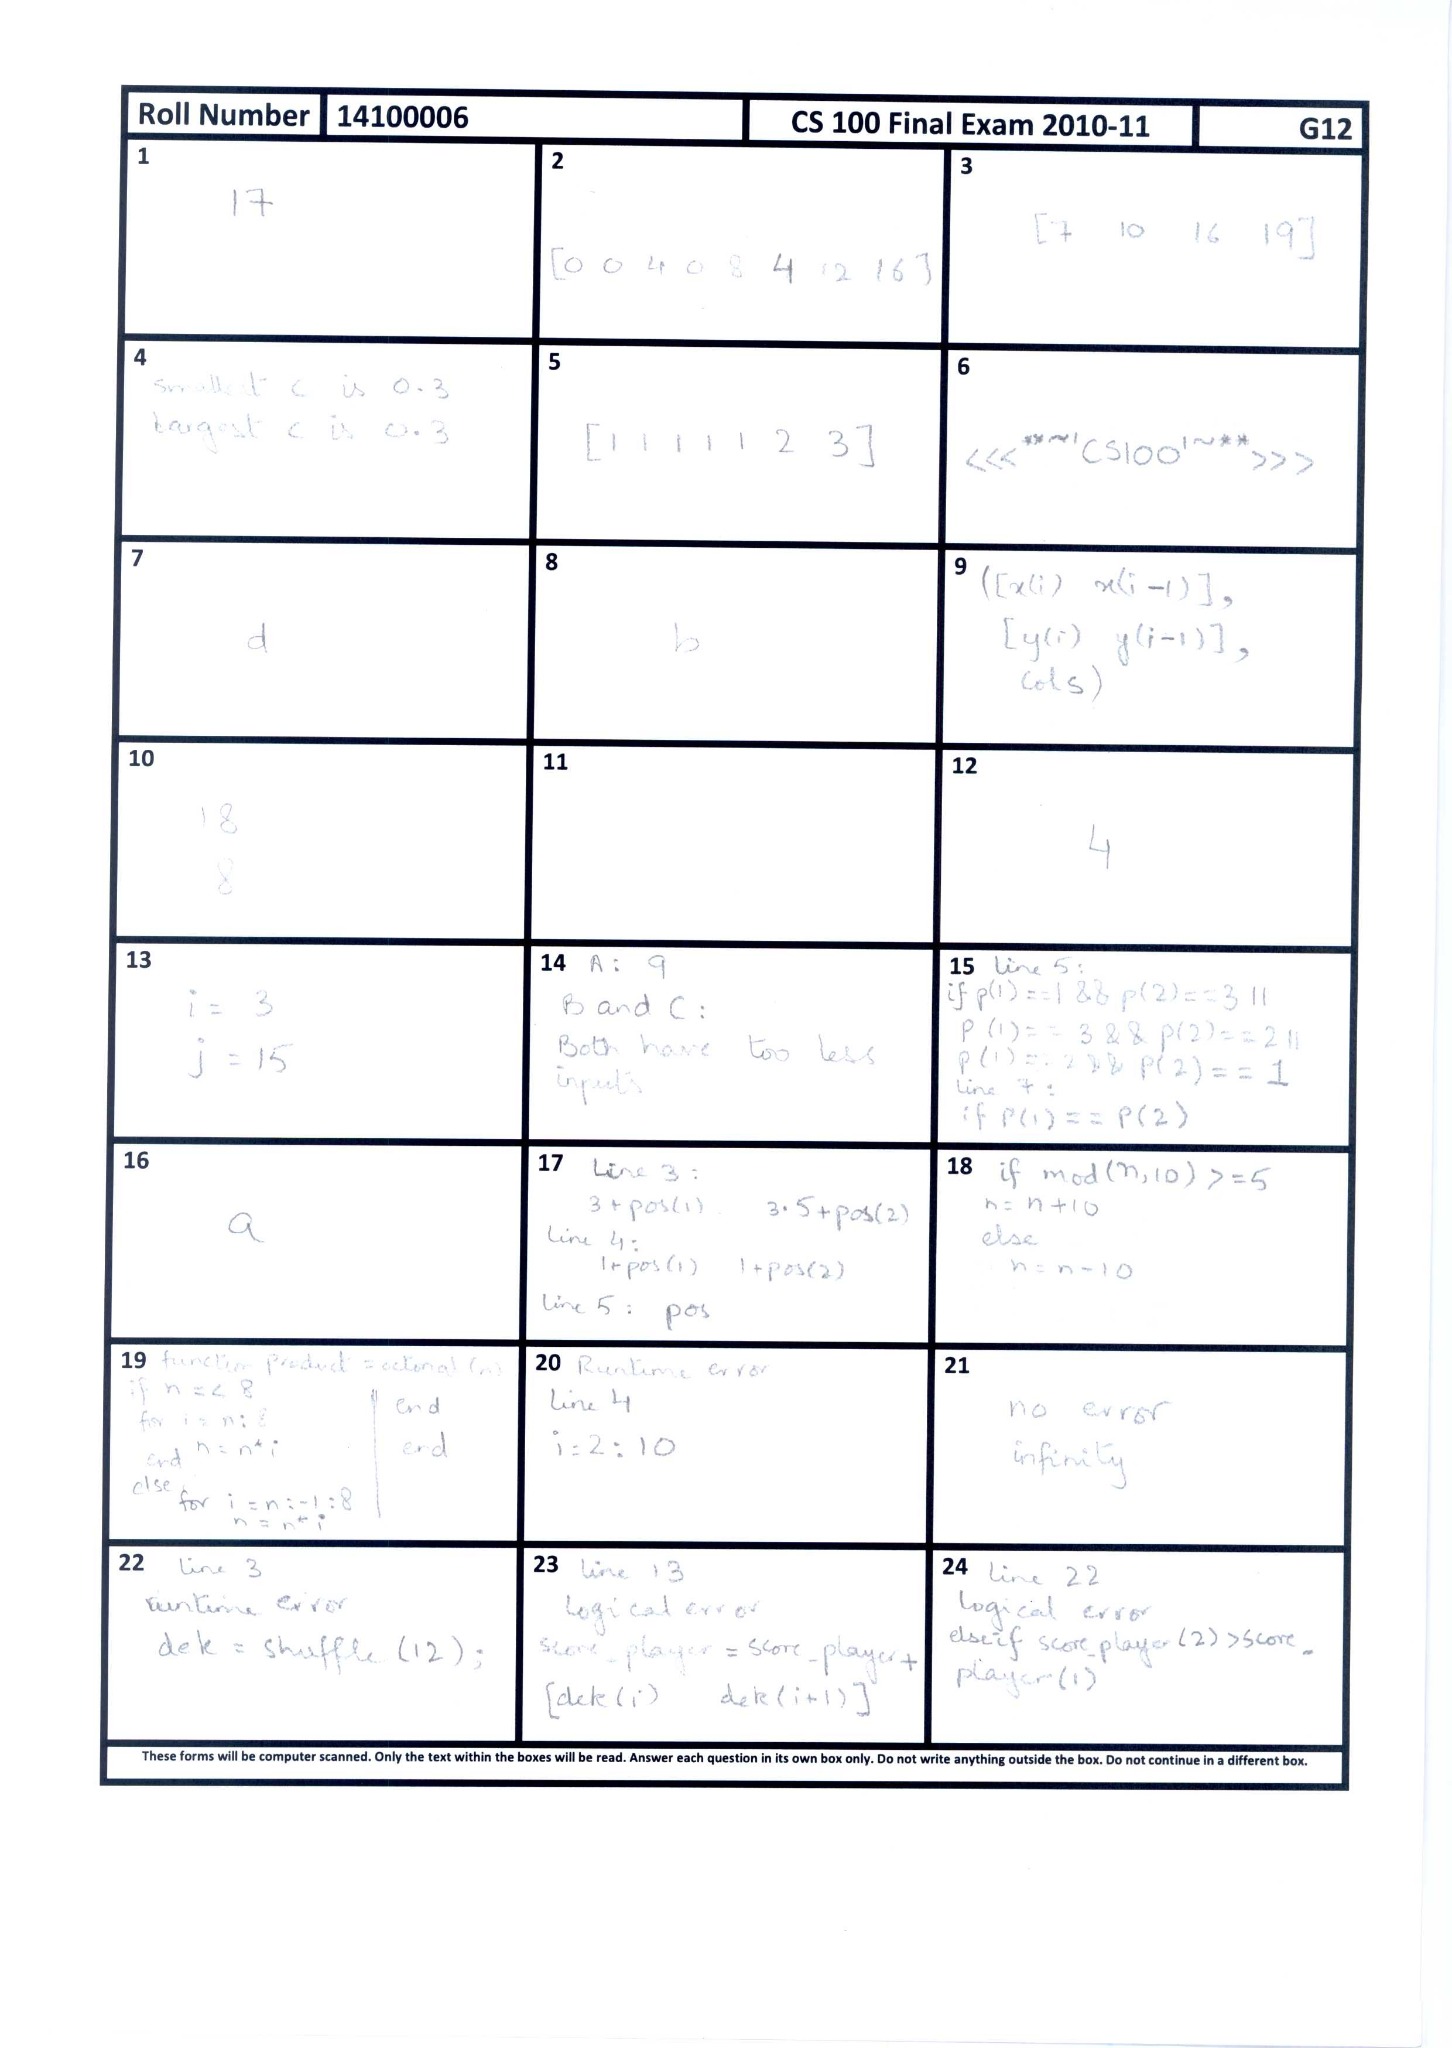 Roll Number 14100006 CS 100 Final Exam 2010-11 G12
1
17
2
[0 0 4 0 8 4 12 16]
3
[7 10 16 19]
4
smallest c is 0.3
largest c is 0.3
5
[1 1 1 1 1 2 3]
6
<<<**~'CS100'~**>>>
7
d
8
b
9 ([x(i) x(i-1)],
[y(i) y(i-1)],
cols)
10
18
8
11
12
4
13
i = 3
j = 15
14 A: 9
B and C:
Both have too less
inputs
15 line 5:
if p(1)==1 && p(2)==3 ||
p(1)== 3 && p(2)==2 ||
p(1)==2 && p(2)==1
line 7:
if p(1)== p(2)
16
a
17 Line 3:
3+pos(1) 3.5+pos(2)
line 4:
1+pos(1) 1+pos(2)
line 5: pos
18 if mod(n,10) >=5
n= n+10
else
n= n-10
19 function product = octorial (n)
if n =< 8
for i = n:8
n = n*i
end
else
for i = n:-1:8
n = n*i
end
end
20 Runtime error
line 4
i=2:10
21
no error
infinity
22 line 3
runtime error
dek = shuffle (12);
23 line 13
Logical error
score_player = score_player +
[dek(i) dek(i+1)]
24 line 22
Logical error
elseif score_player(2) > score_
player(1)
These forms will be computer scanned. Only the text within the boxes will be read. Answer each question in its own box only. Do not write anything outside the box. Do not continue in a different box.